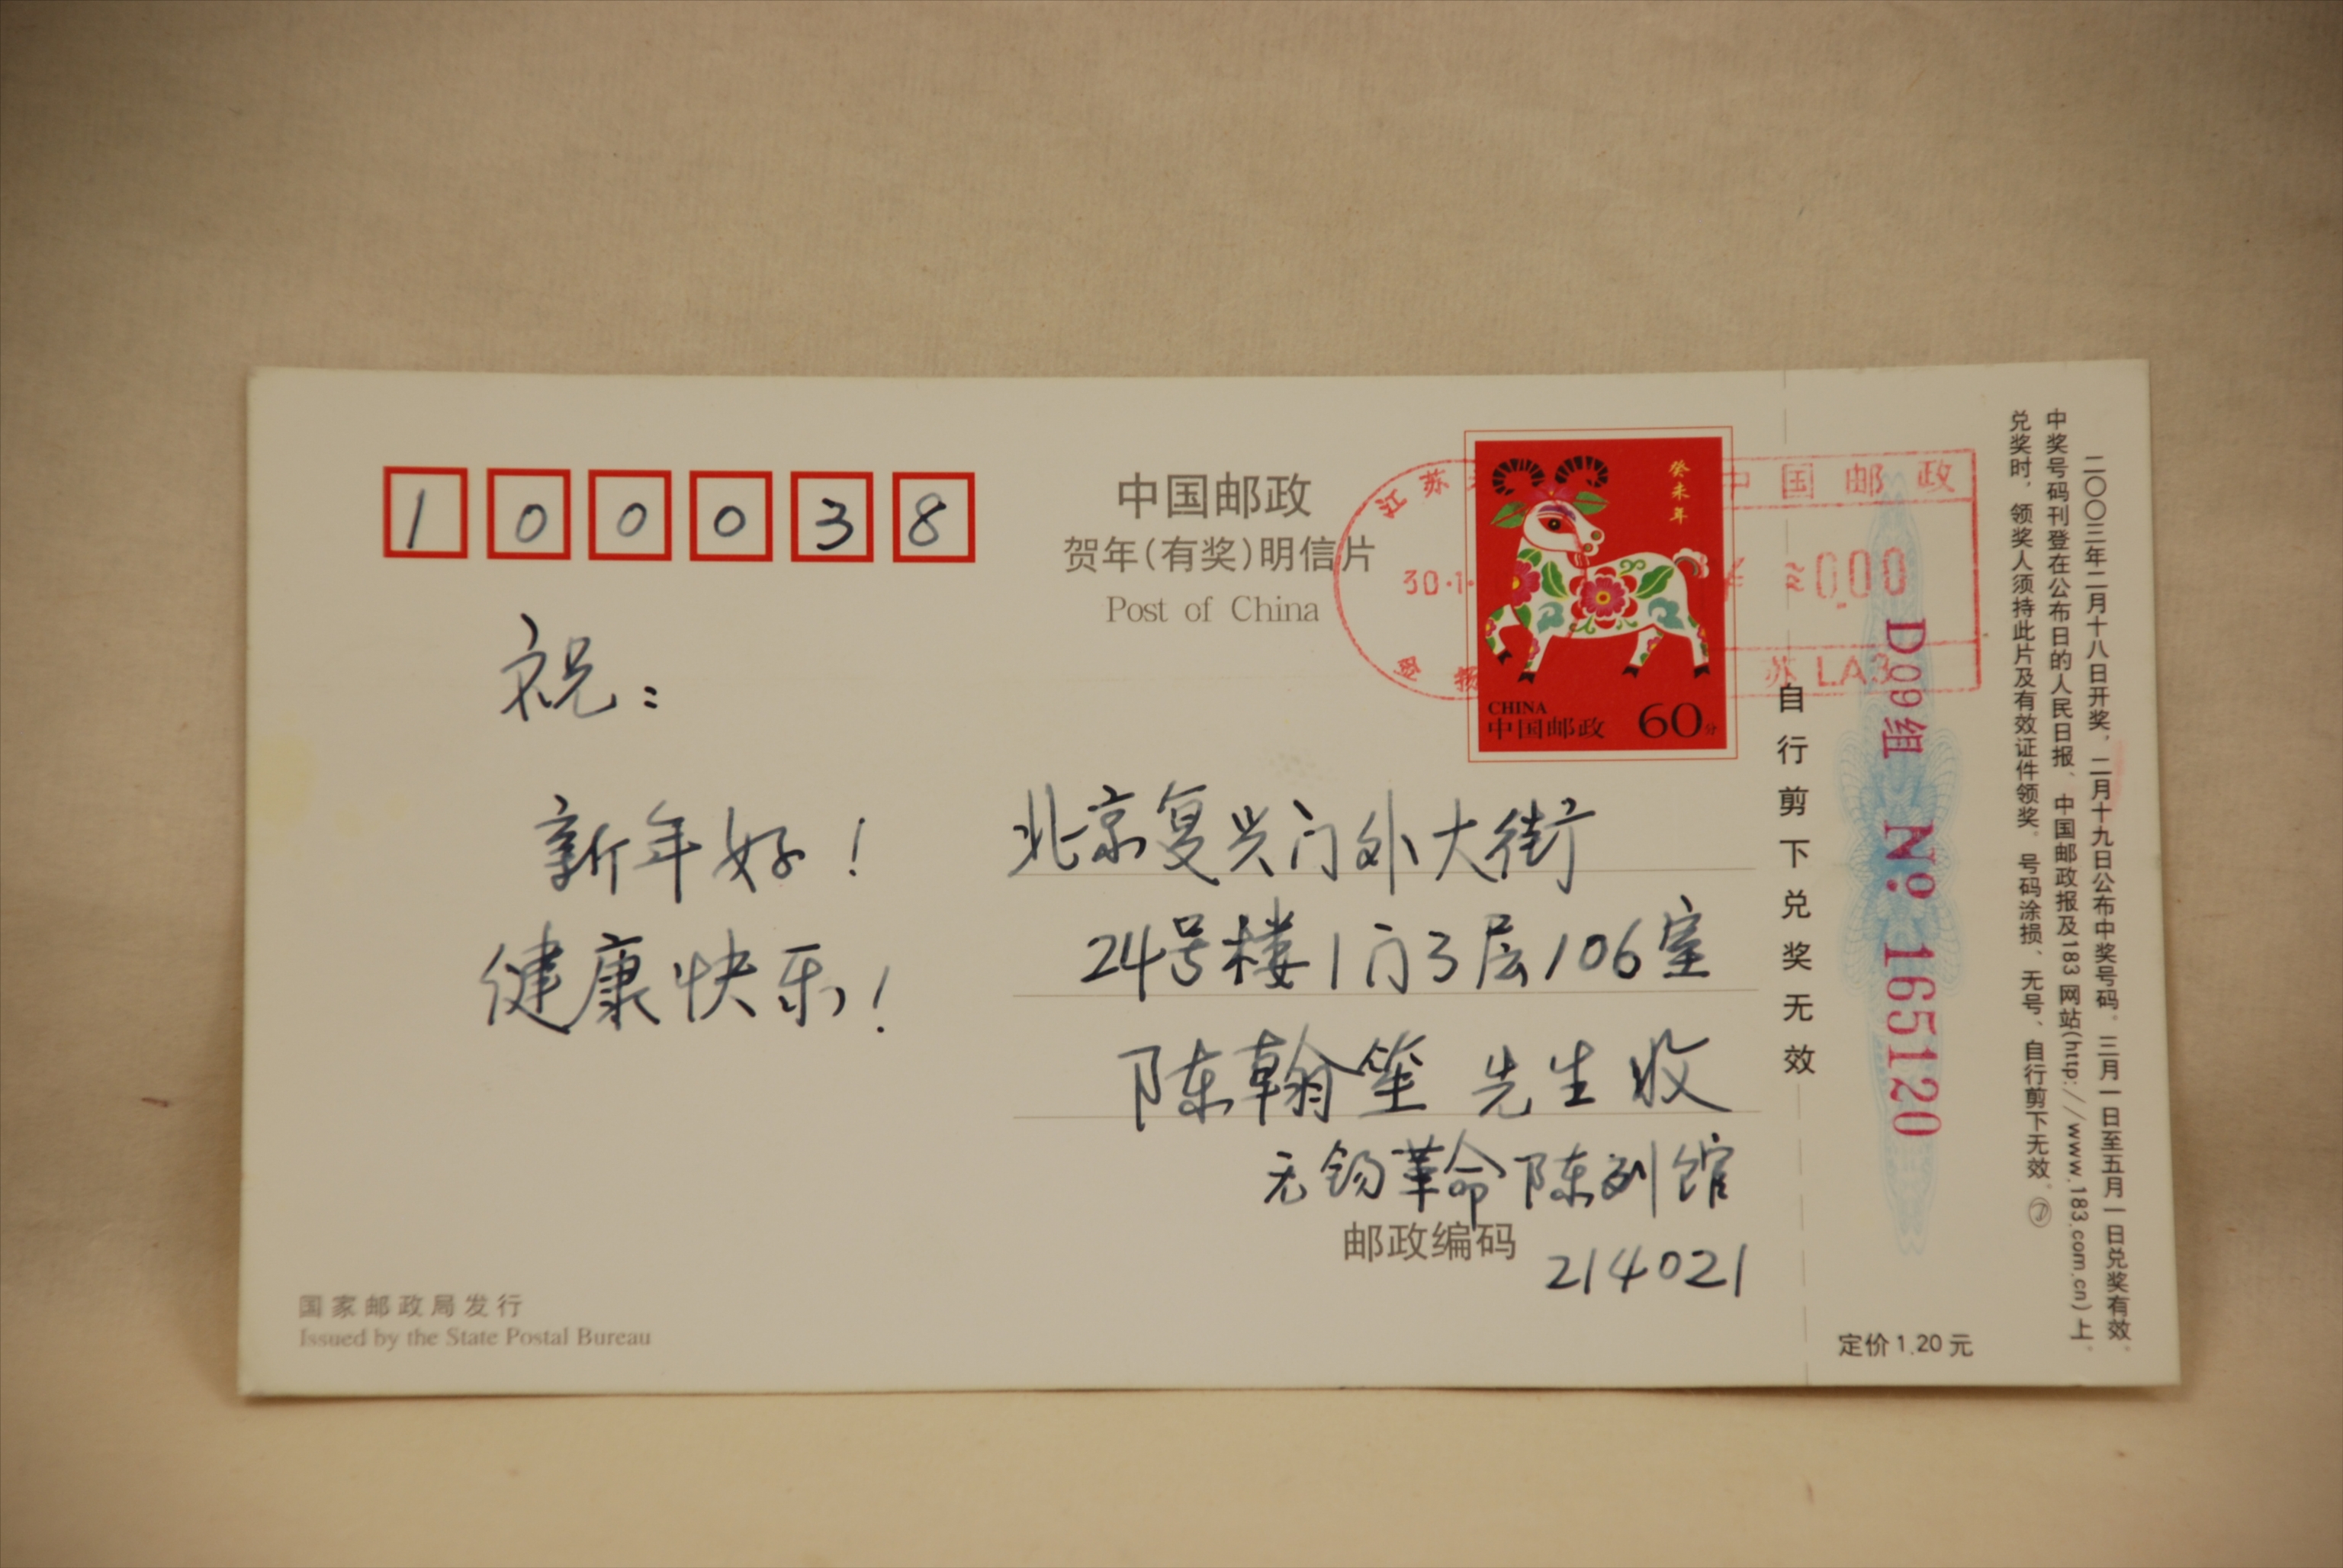 100038
中国邮政
贺年(有奖)明信片
Post of China
江苏
中国邮政
30·1·
0.00
苏 LA3
癸未年
CHINA
中国邮政 60分
祝：
新年好！
健康快乐！
北京复兴门外大街
24号楼1门3层106室
陈翰笙 先生 收
无锡革命陈列馆
邮政编码 214021
国家邮政局发行
Issued by the State Postal Bureau
自行剪下兑奖无效
D09组 № 165120
定价 1.20 元
二〇〇三年二月十八日开奖，二月十九日公布中奖号码。三月一日至五月一日兑奖有效。
中奖号码刊登在公布日的人民日报、中国邮政报及183网站(http://www.183.com.cn)上。
兑奖时，领奖人须持此片及有效证件领奖。号码涂损、无号、自行剪下无效。